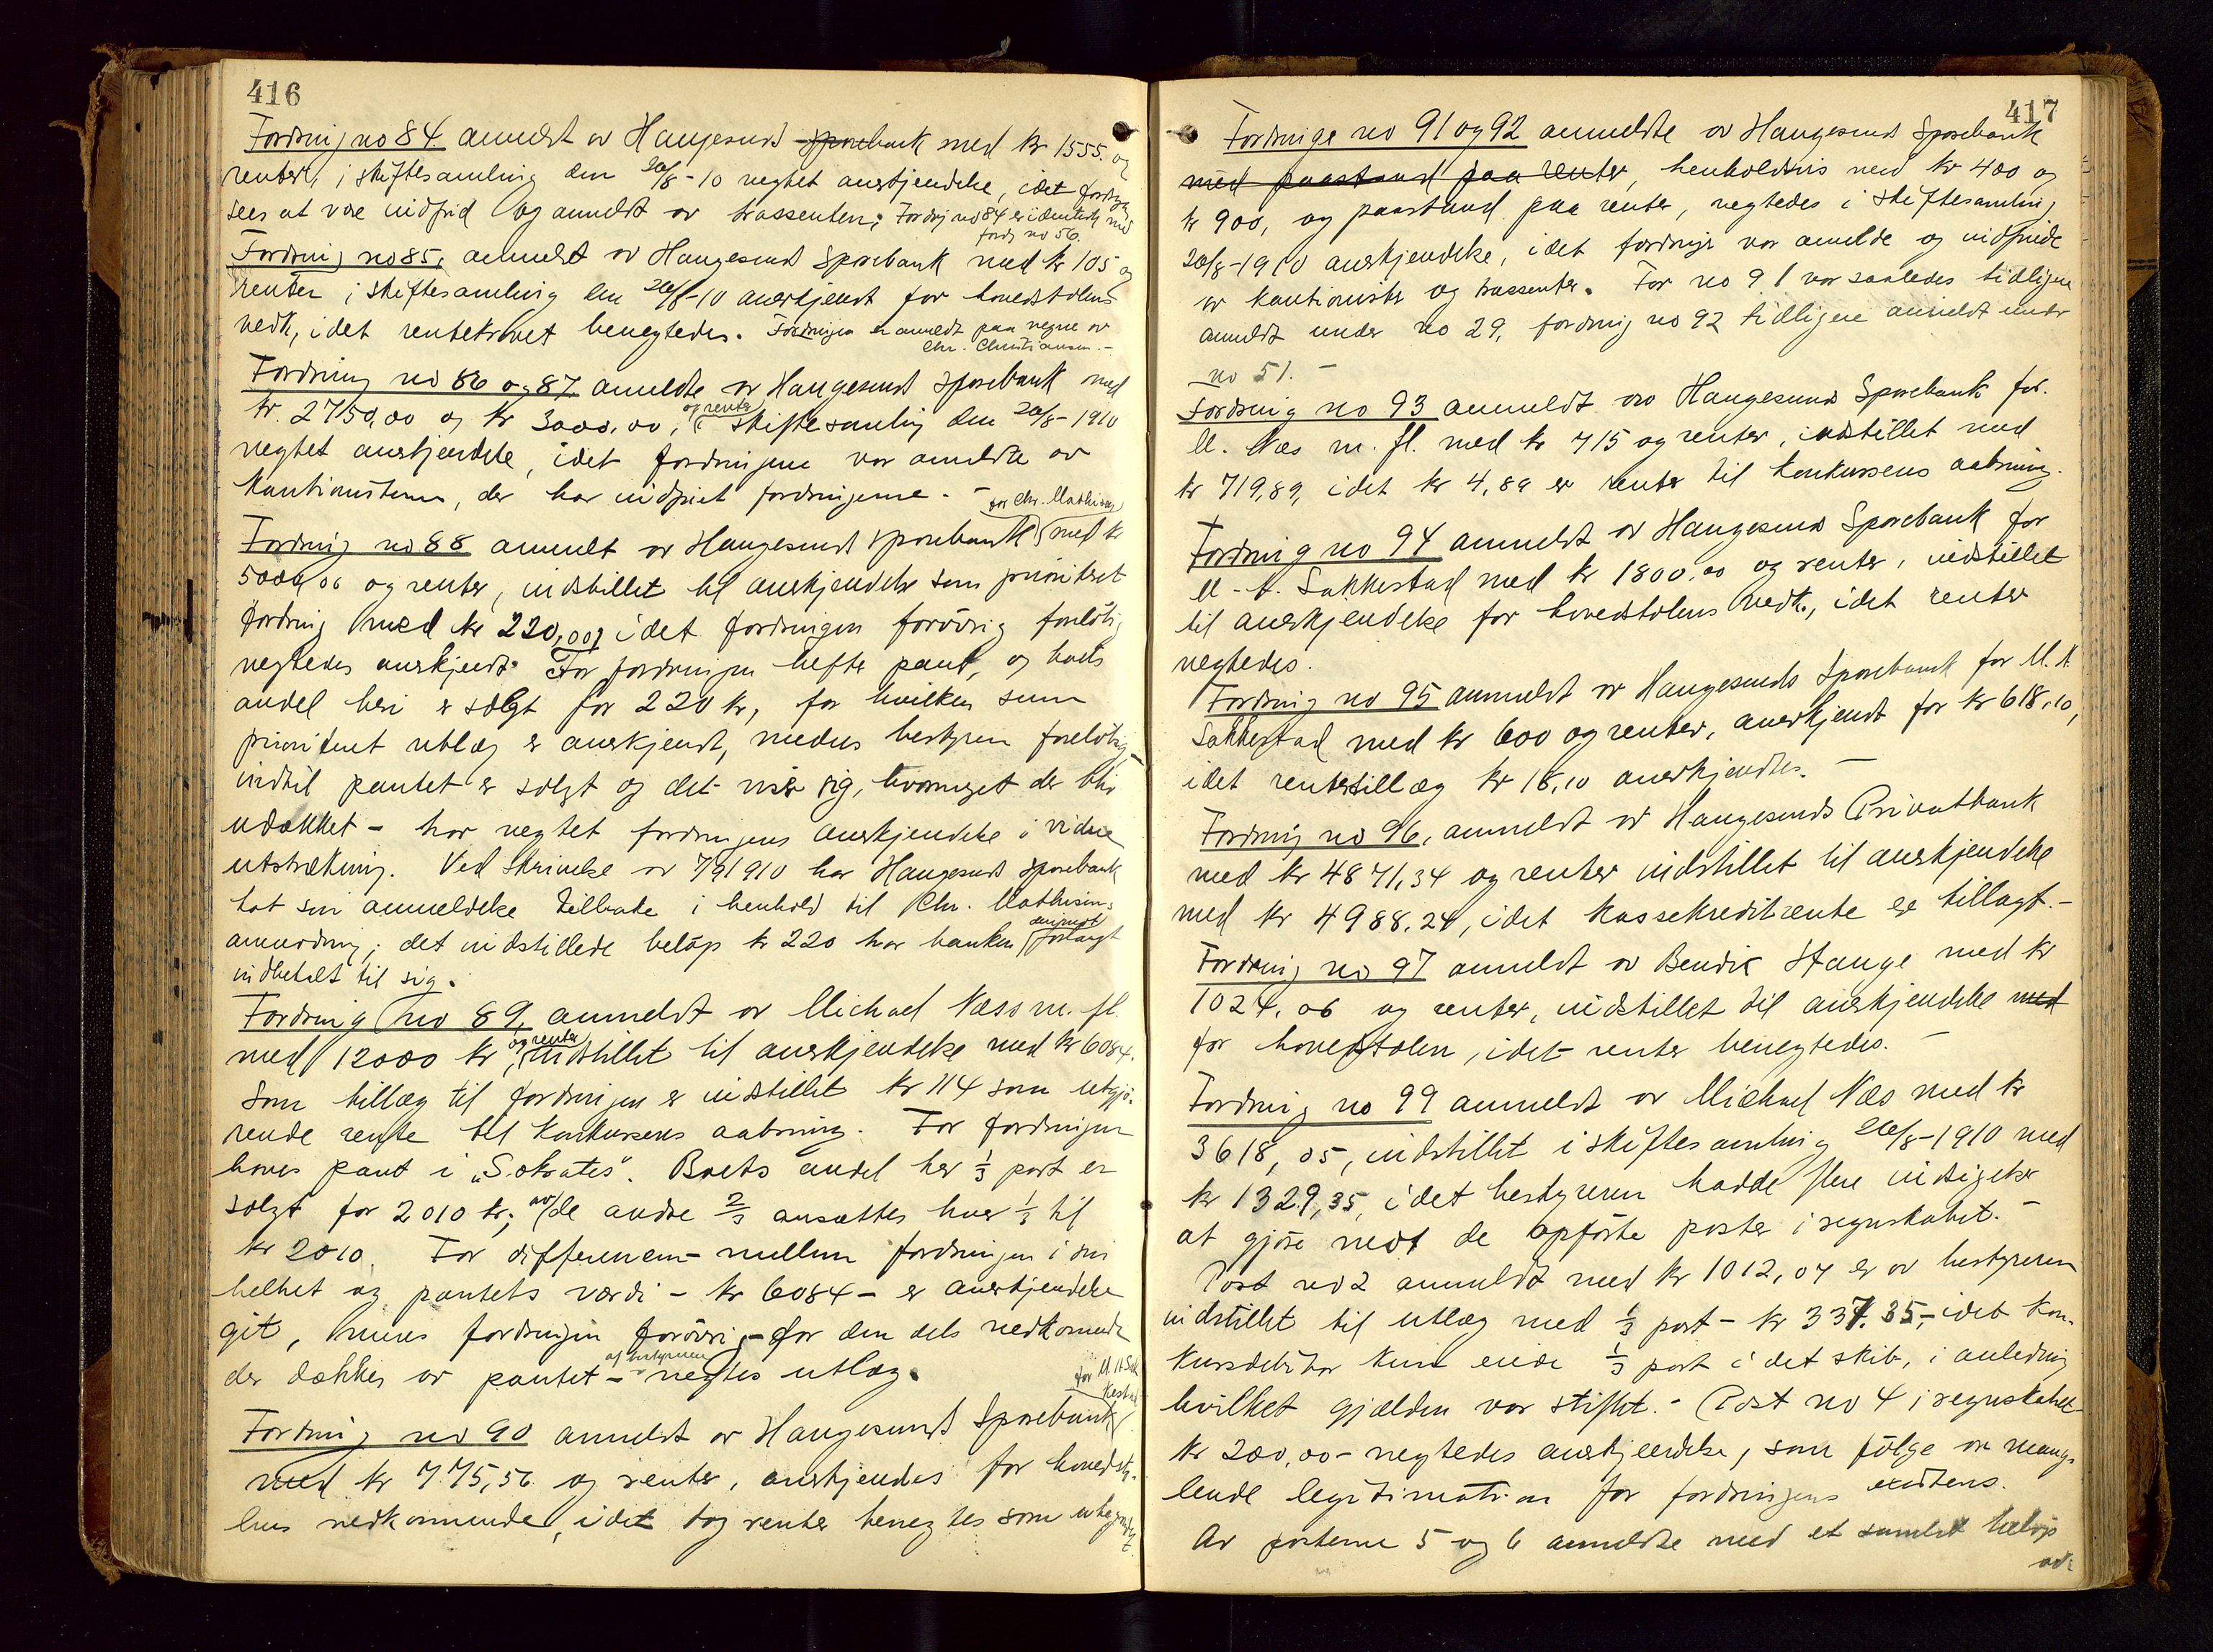 416
Fordring no 84 anmeldt av Haugesund Sparebank med kr 1555. og
renter, i skiftesamling den 20/8-10 negtet anerkjendelse, idet fordring
sees at være indfrid og anmeldt av trassenten; Fordring no 84 er identisk med
fordr no 56.
Fordring no 85, anmeldt av Haugesund Sparebank med kr 105 og
renter i skiftesamling den 20/8-10 anerkjendt for hovedstolens
vedk, idet rentekravet benegtedes. Fordringen er anmeldt paa vegne av
Chr. Christiansen. -
Fordring no 86 og 87 anmeldte av Haugesund Sparebank med
kr. 2750,00 og kr 3000,00, og renter i skiftesamling den 20/8-1910
negtet anerkjendelse, idet fordringene var anmeldte av
kautionisterne, der har indfriet fordringerne. -
for Chr. Mathisen
Fordring no 88 anmeldt av Haugesund Sparebank med kr
5000,00 og renter, indstillet til anerkjendelse som prioritert
fordring med kr 220,00, idet fordringen forøvrig foreløbig
negtedes anerkjendt. For fordringen hefter pant, og boets
andel heri er solgt for 220 kr, for hvilken sum
prioritert utlæg er anerkjendt, medens bestyreren foreløbig -
indtil pantet er solgt og det viser sig, hvormeget der blir
udækket - har negtet fordringens anerkjendelse i videre
utstrækning. Ved skrivelse av 7/9 1910 har Haugesund Sparebank
tat sin anmeldelse tilbake i henhold til Chr. Mathisens
anmodning; det indstillede beløp kr 220 har banken derimot forlangt
indbetalt til sig.
Fordring no 89, anmeldt av Michael Næss m. fl.
med 12000 kr, og renter indstillet til anerkjendelse med kr 6084.
Som tillæg til fordringen er indstillet kr 114 som utgjø-
rende rente til konkursens aabning. For fordringen
haves pant i "Sokrates". Boets andel her 1/3 part er
solgt for 2010 kr; av de andre 2/3 ansættes hver 1/3 til
kr 2010. For differencen mellem fordringen i sin
helhet og pantets værdi - kr 6084 - er anerkjendelse
git, mens fordringen forøvrig - for den dels vedkommende
der dækkes av pantet - af bestyreren negtes utlæg.
for M. A. Sak
kestad
Fordring no 90 anmeldt av Haugesund Sparebank
med kr 775,56 og renter, anerkjendes for hovedsto-
lens vedkommende, idet dog renter benegtes som ubegrundet.
417
Fordringe no 91 og 92 anmeldte av Haugesund Sparebank
med paastand paa renter, henholdsvis med kr 400 og
kr 900, og paastand paa renter, negtedes i skiftesamling
20/8-1910 anerkjendelse, idet fordringer var anmeldte og indfriede
av kautionister og trassenter. For no 91 var saaledes tidligere
anmeldt under no 29, fordring no 92 tidligere anmeldt under
no 51. -
Fordring no 93 anmeldt av Haugesund Sparebank for
M. Næs m. fl. med kr 715 og renter, indstillet med
kr 719,89, idet kr 4,89 er renter til konkursens aabning.
Fordring no 94 anmeldt av Haugesund Sparebank for
M. A. Sakkestad med kr 1800,00 og renter, indstillet
til anerkjendelse for hovedstolens vedk., idet renter
negtedes.
Fordring no 95 anmeldt av Haugesunds Sparebank for M. A.
Sakkestad med kr 600 og renter, anerkjendt for kr 618,10,
idet rentetillæg kr 18,10 anerkjendtes. -
Fordring no 96, anmeldt av Haugesunds Privatbank
med kr 4871,34 og renter indstillet til anerkjendelse
med kr 4988,24, idet kassekreditrente er tillagt. -
Fordring no 97 anmeldt av Bendik Stange med kr
1024,06 og renter, indstillet til anerkjendelse med
for hovedstolen, idet renter benegtedes. -
Fordring no 99 anmeldt av Michael Næs med kr
3618,05, indstillet i skiftesamling 20/8-1910 med
kr 1329,35, idet bestyreren hadde flere indsigelser
at gjøre mot de opførte poster i regnskabet. -
Post no 2 anmeldt med kr 1012,04 er av bestyreren
indstillet til utlæg med 1/3 part - kr 337.35 - idet kon-
kursdebitor kun eiede 1/3 part i det skib, i anledning
hvilket gjælden var stiftet. - Post no 4 i regnskabet
kr 200,00 - negtedes anerkjendelse, som følge av mang-
lende legitimation for fordringens existens.
Av posterne 5 og 6 anmeldte med et samlet beløp